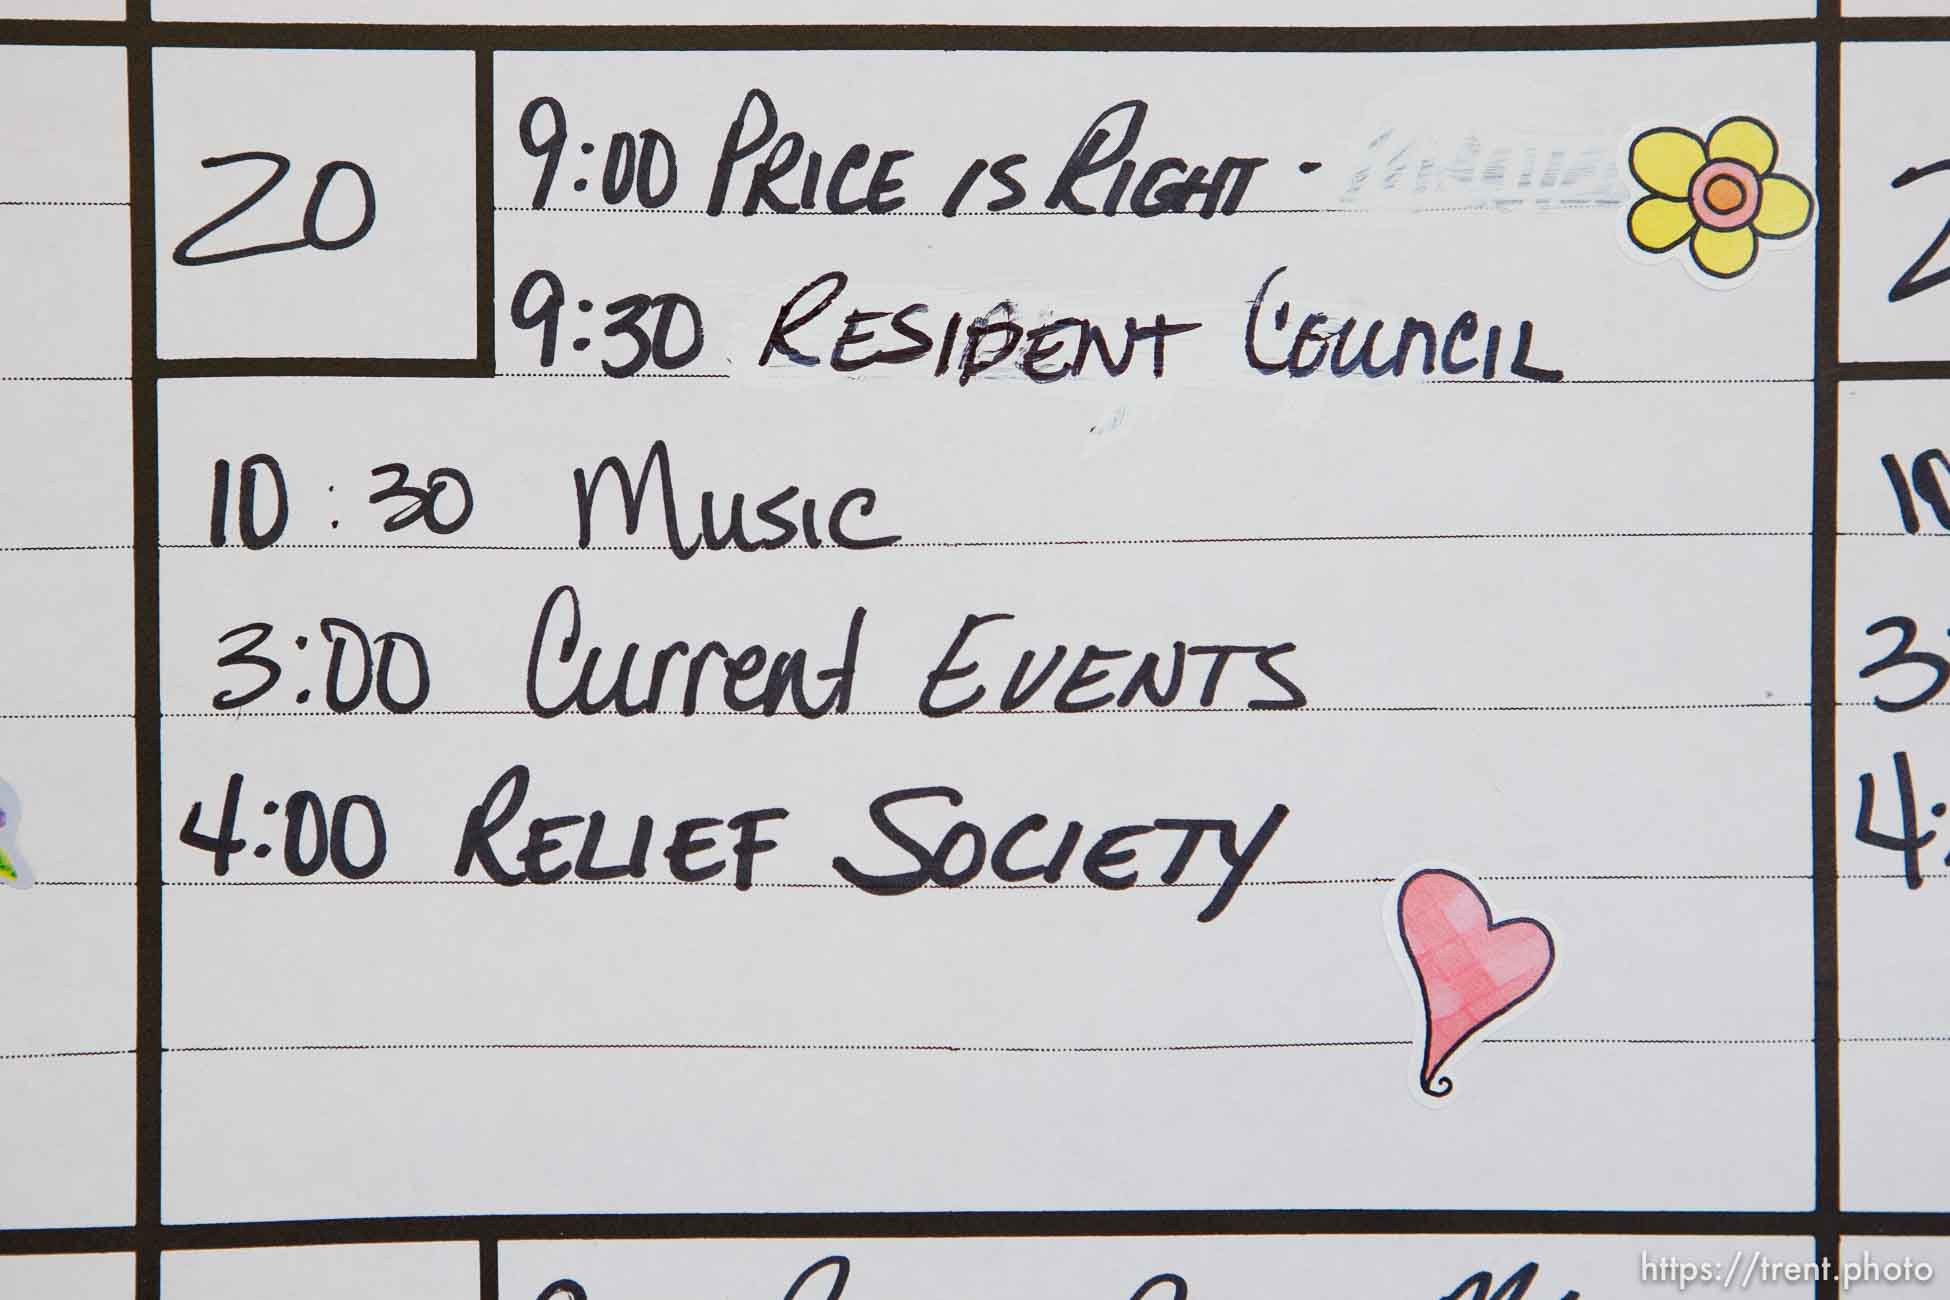 20
9:00 PRICE IS RIGHT -
9:30 RESIDENT COUNCIL
10:30 Music
3:00 Current EVENTS
4:00 RELIEF SOCIETY
2
10
3:
4:
https://trent.photo